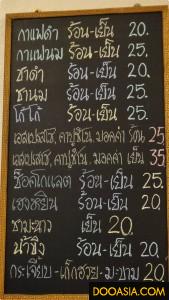 กาแฟดำ ร้อน-เย็น 20.
กาแฟนม ร้อน-เย็น 25.
ชาดำ ร้อน-เย็น 20.
ชานม ร้อน-เย็น 25.
โกโก้ ร้อน-เย็น 25.
เอสเปสโซ่, คาปูชิโน, มอคค่า ร้อน 25
เอสเปสโซ่, คาปูชิโน, มอคค่า เย็น 35
ช็อคโกแลต ร้อน-เย็น 25.
เฮงหยิน ร้อน-เย็น 20.
ชามะนาว เย็น 20.
น้ำขิง ร้อน-เย็น 20.
กระเจี๊ยบ-เก็กฮวย-มะขาม 20.
DOOASIA.COM